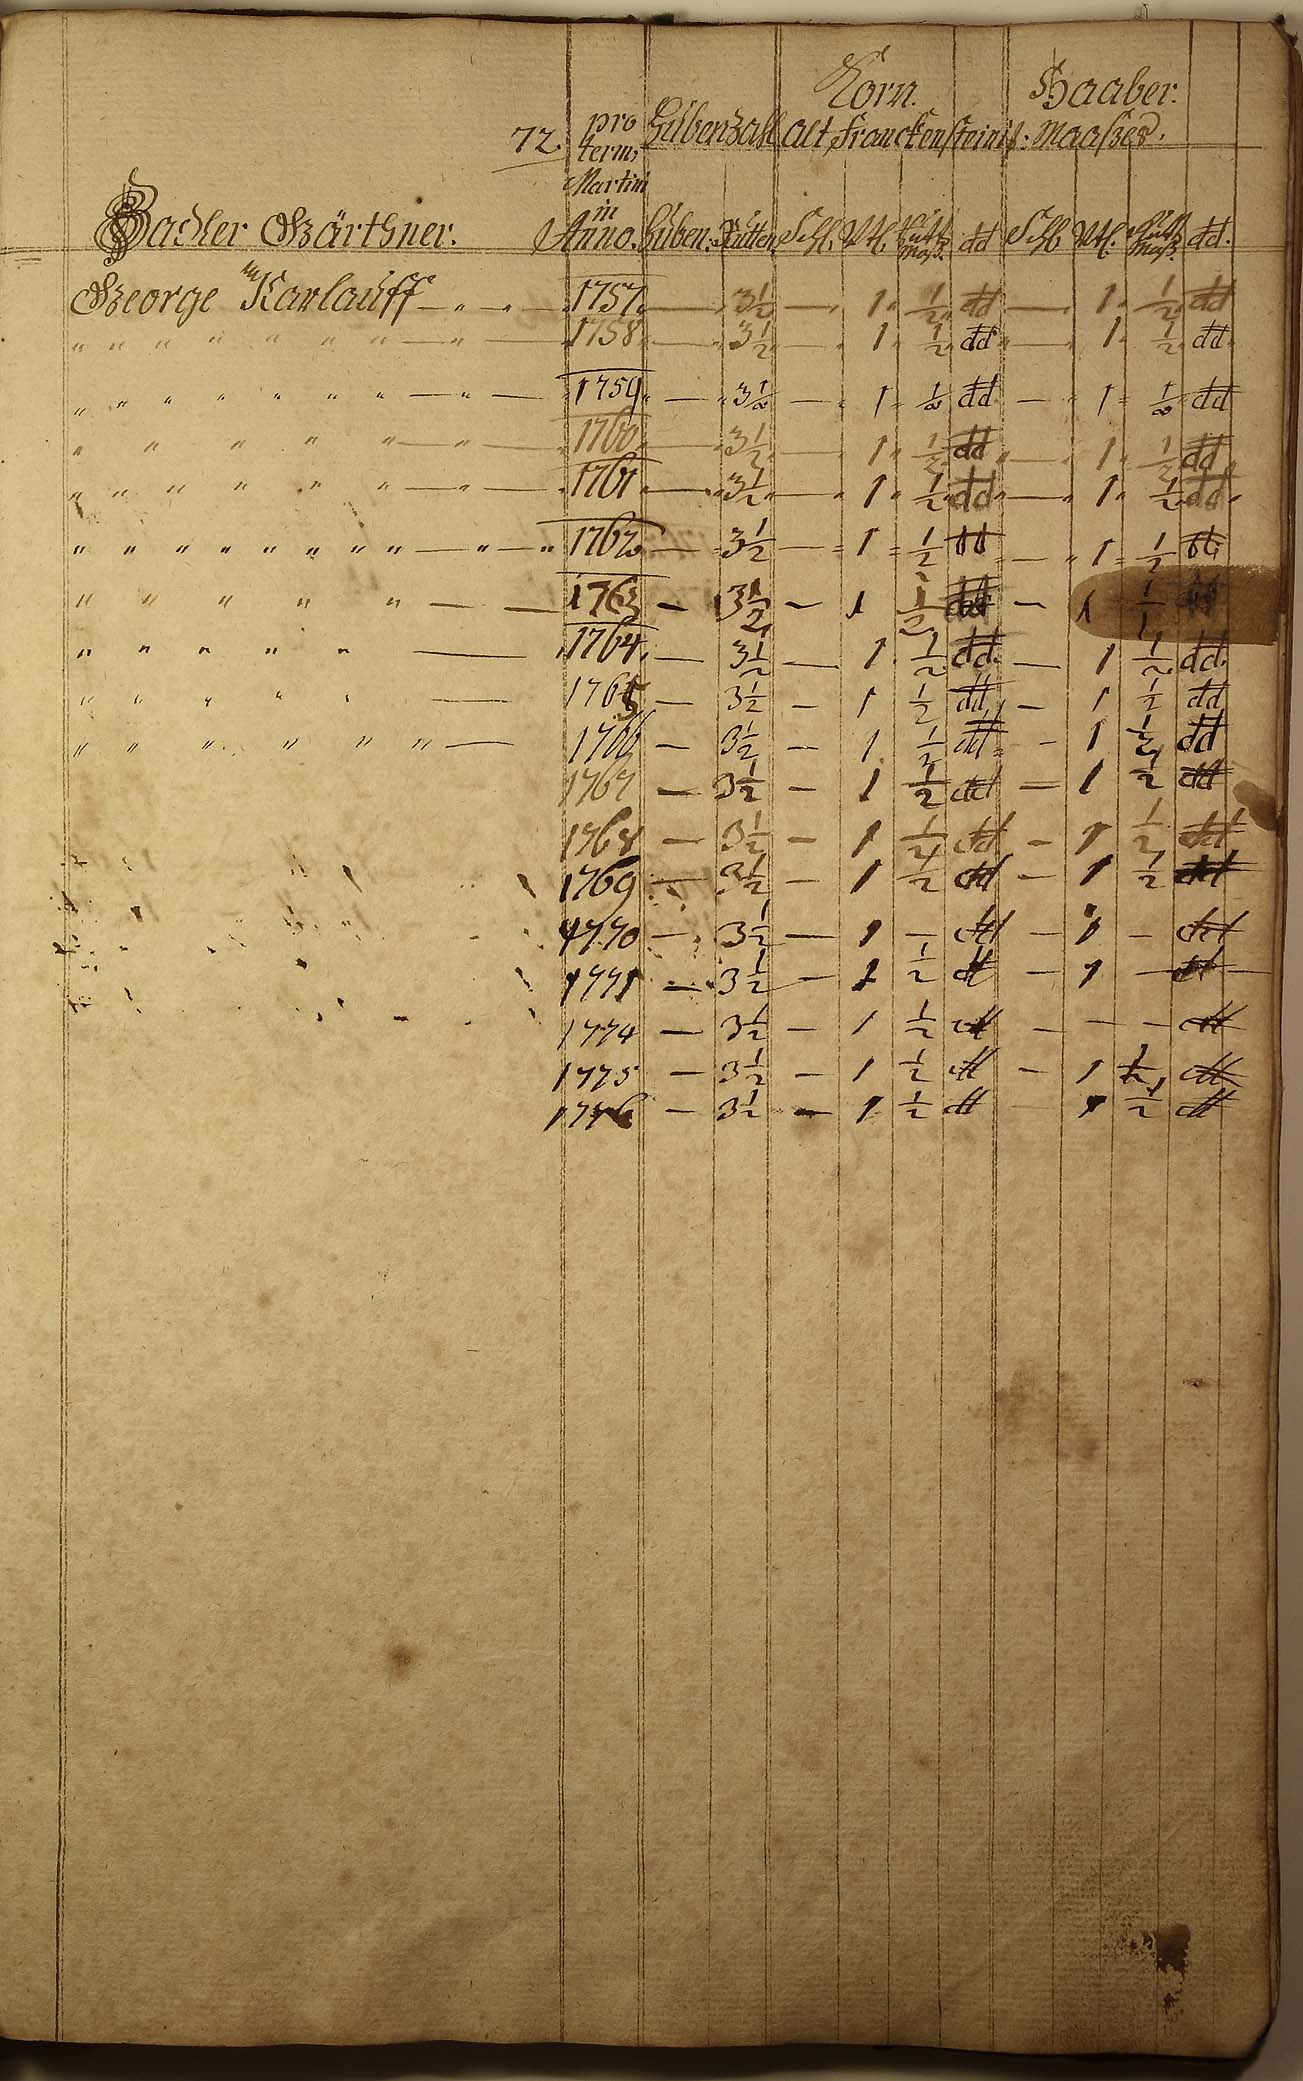 Korn. Haaber.
72. pro Hubenzahl alt Franckensteinis: Maaßes.
term:
Martini
in
Gärthner. Anno. Huben. Rutten Schl. Vtl. Maß. dd Schl. Vtl. Maß. dd.
George Karlauff — " — " 1757. — 3½ — 1 ½ dd — 1 ½ dd
" " " " " " " " — " — 1758 — 3½ — 1 ½ dd — 1 ½ dd
" " " " " " " — " — 1759 — 3½ — 1 ½ dd — 1 ½ dd
" " " " " — " — 1760 — 3½ — 1 ½ dd — 1 ½ dd
" " " " " " — " — 1761 — 3½ — 1 ½ dd — 1 ½ dd
" " " " " " " " " — " — " 1762 — 3½ — 1 ½ dd — 1 ½ dd
" " " " " — — 1763 — 3½ — 1 ½ dd — 1 ½ dd
" " " " " — 1764 — 3½ — 1 ½ dd — 1 ½ dd.
" " " " " — 1765 — 3½ — 1 ½ dd — 1 ½ dd
" " " " " " — 1766 — 3½ — 1 ½ dd — 1 ½ dd
1767 — 3½ — 1 ½ dd — 1 ½ dd
1768 — 3½ — 1 ½ dd — 1 ½ dd
1769 — 3½ — 1 ½ dd — 1 ½ dd
1770 — 3½ — 1 — dd — 1 — dd
1771 — 3½ — 1 ½ dd — 1 — dd
1774 — 3½ — 1 ½ dd — — — dd
1775 — 3½ — 1 ½ dd — 1 ½ dd
1776 — 3½ — 1 ½ dd 1 ½ dd